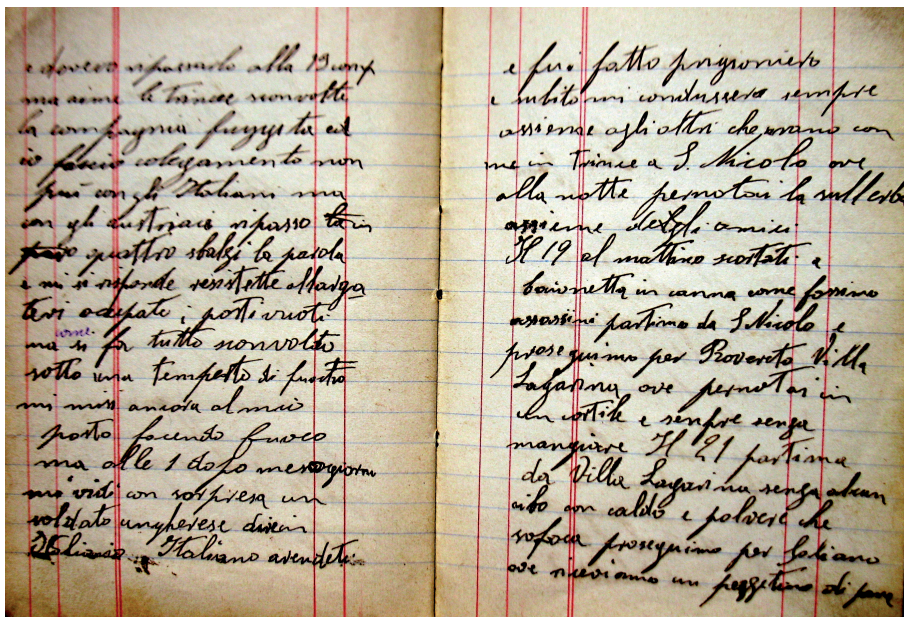 e dovevo ripassarlo alla 13 comp
ma aime le trincee sconvolte
la compagnia fuggita ed
io faccio colegamento non
più con gli Italiani ma
con gli austriaci ripasso
quattro sbalzi la parola
e mi si risponde resistette allarga
tevi ocupate i posti vuoti
ma come si fa tutto sconvolto
sotto una tempesta di fuocho
mi misi ancora al mio
posto facendo fuoco
ma alle 1 dopo mezzogiorno
mi vidi con sorpresa un
soldato ungherese
Italiano Italiano arendeti
e fui fatto prigioniero
e subito mi condussero sempre
assieme agli altri che erano con
me in trince a S. Nicolo ove
alla notte pernotai la sull'erba
assieme degli amici
Il 19 al mattino scortati a
baionetta in canna come fossimo
assassini partimo da S Nicolo e
proseguimo per Rovereto Villa
Lagarina ove pernotai in
un cortile e sempre senza
mangiare Il 21 partima
da Villa Lagarina senza alcun
cibo con caldo e polvere che
sofoca proseguimo per Caliano
ove ricevimmo un pezzetino di pane